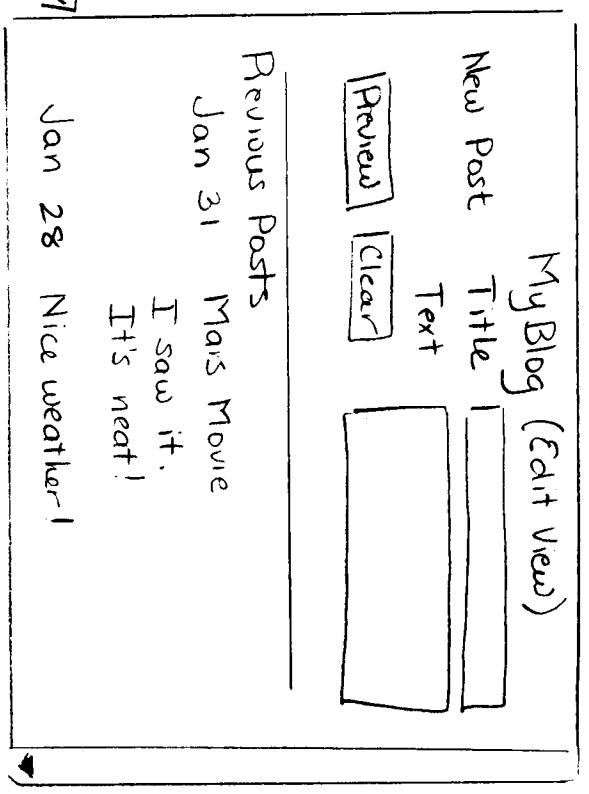 My Blog (Edit View)
New Post Title
Text
Preview Clear
Previous Posts
Jan 31 Mars Movie
I saw it.
It's neat!
Jan 28 Nice weather!